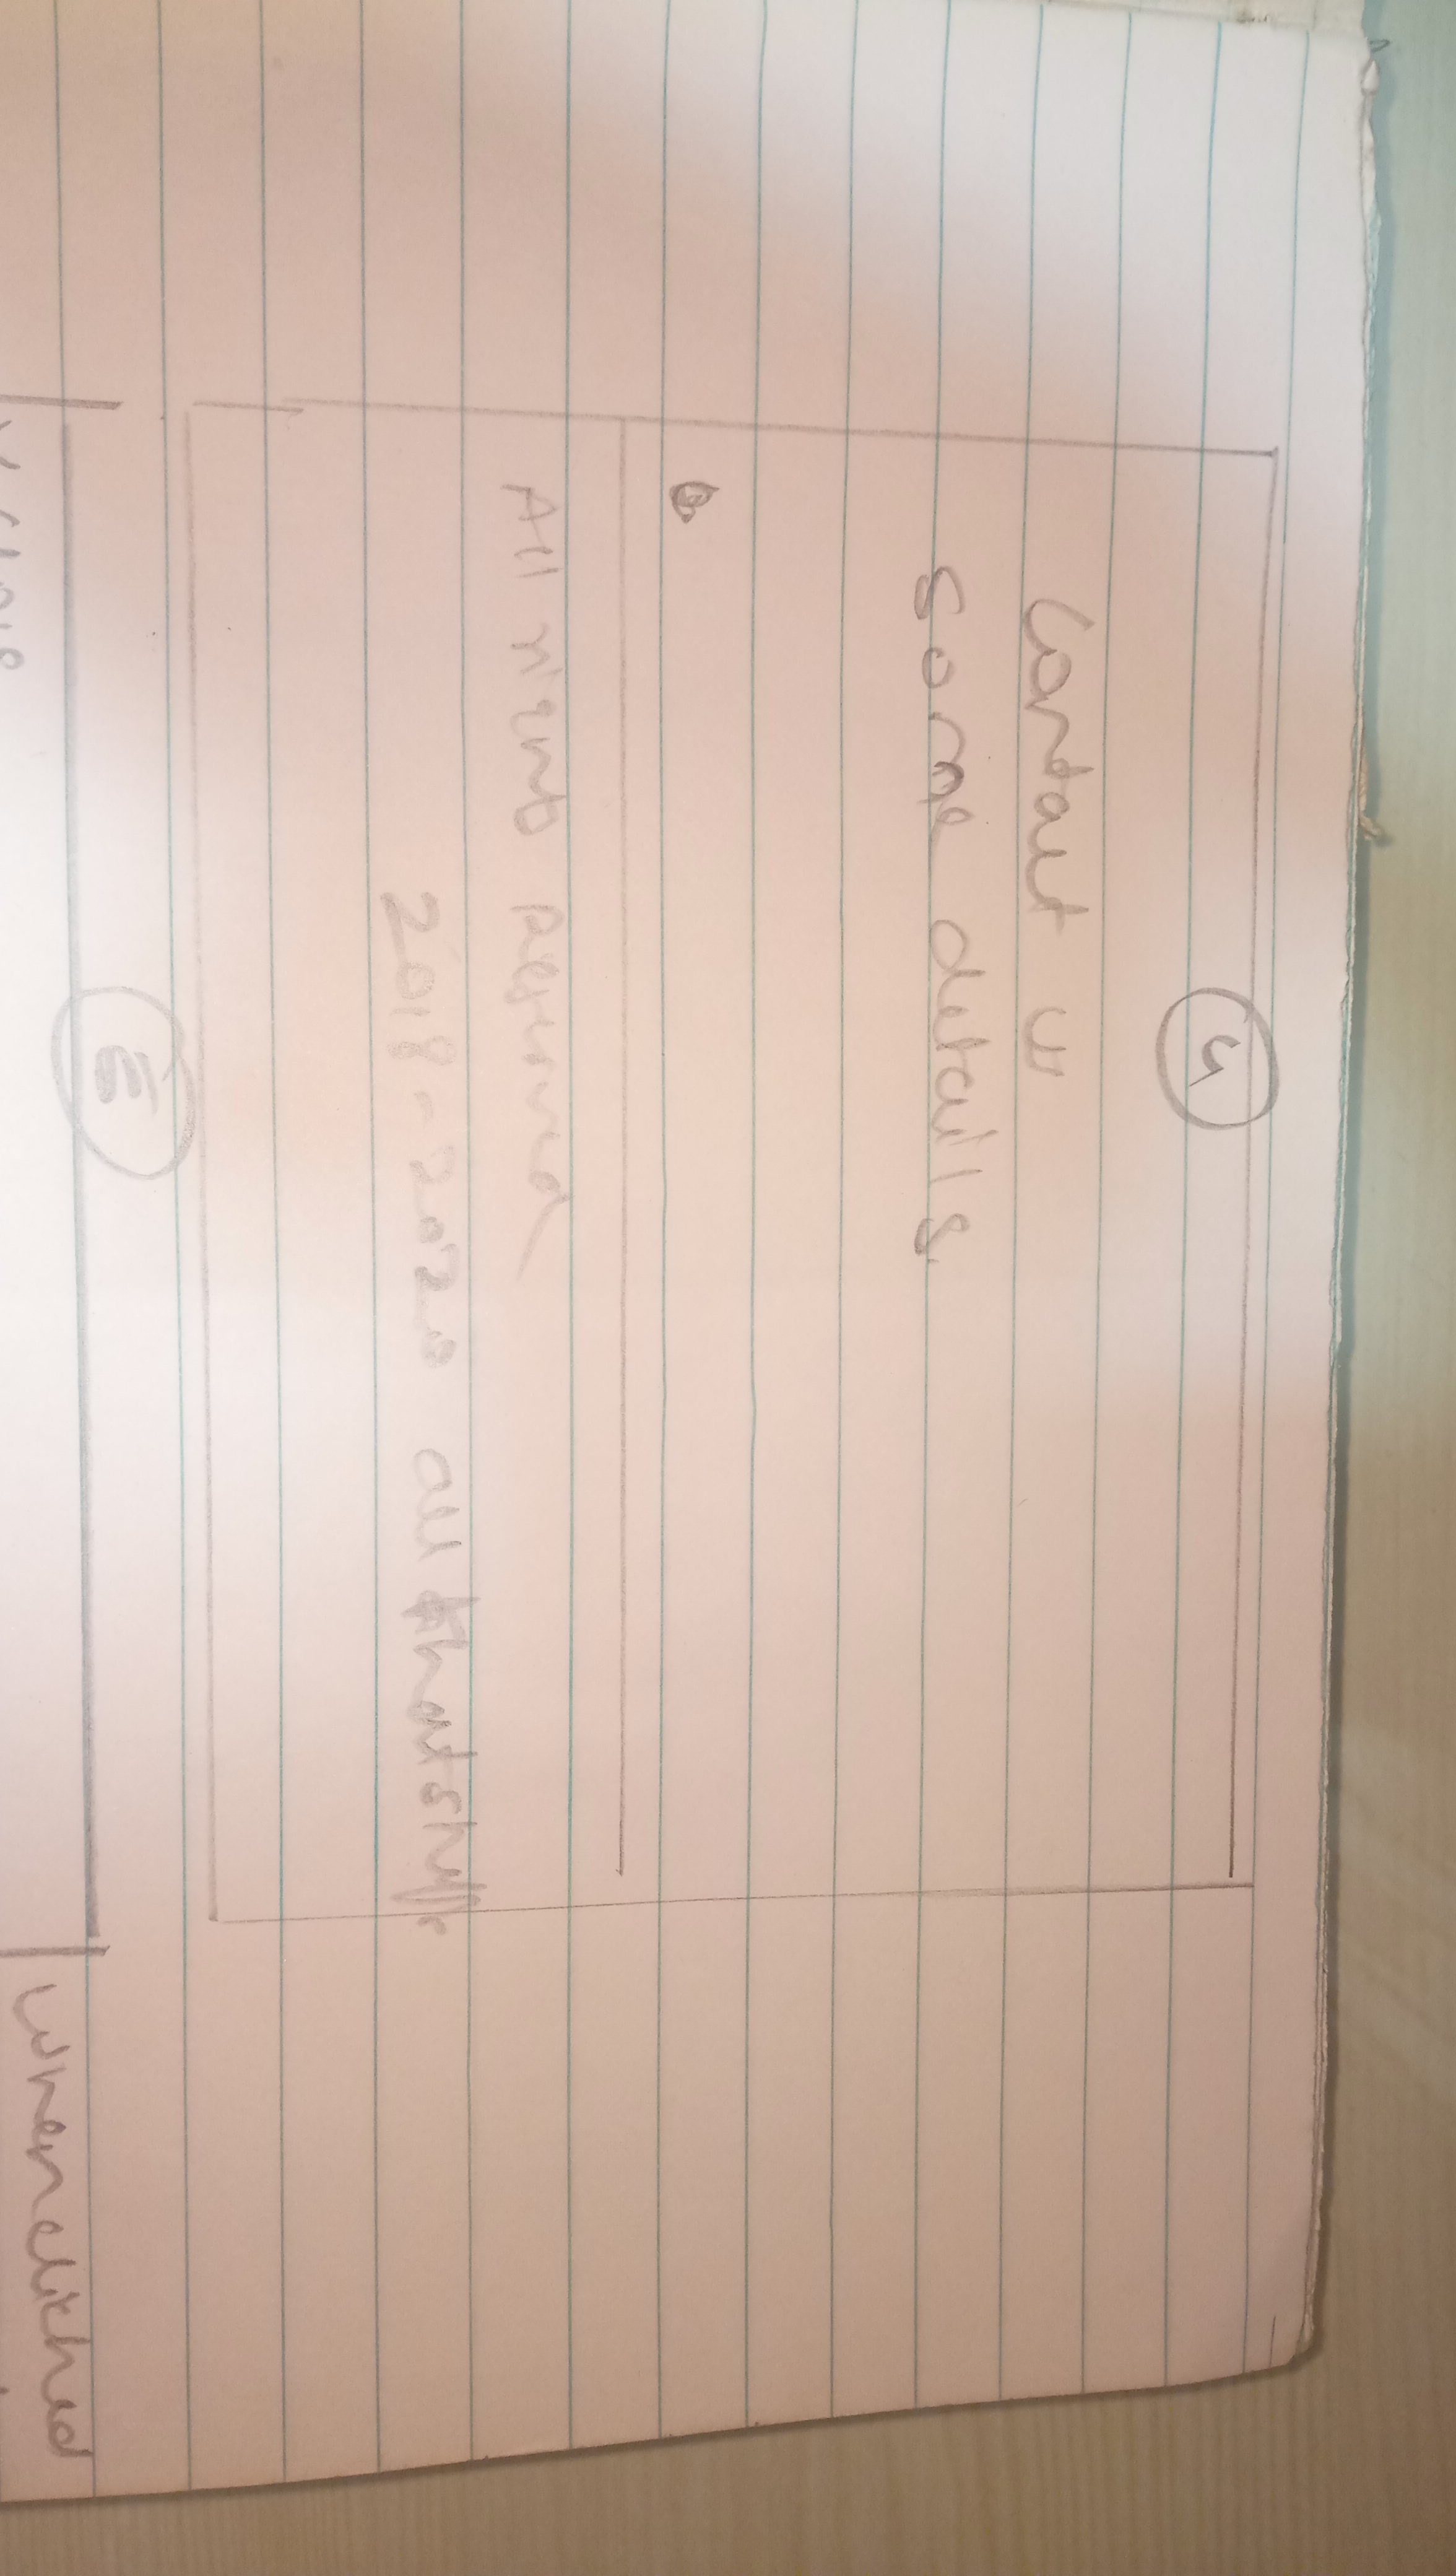 4
Contact us
some details
All rights reserved
2018 - 2020 all that stuff
E
When clicked